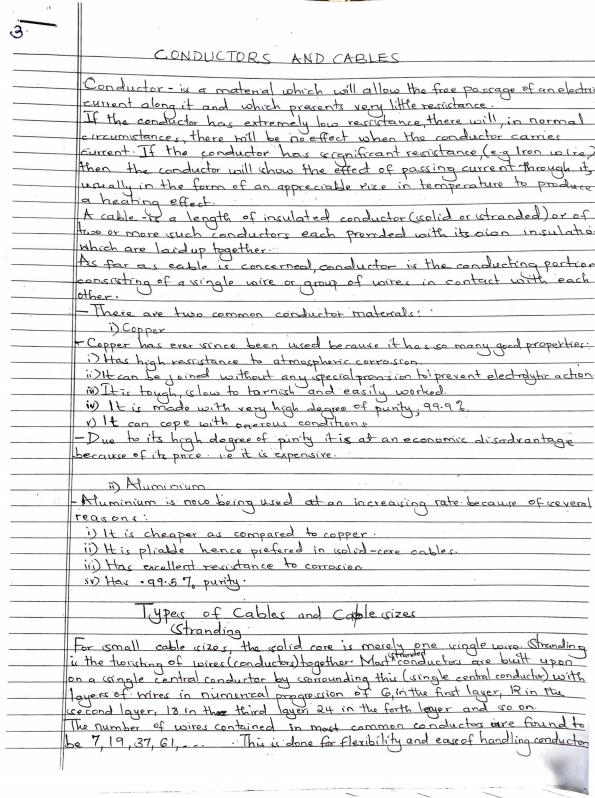 3.
CONDUCTORS AND CABLES
Conductor - is a material which will allow the free passage of an electri
current along it and which presents very little resistance.
If the conductor has extremely low resistance, there will, in normal
circumstances, there will be no effect when the conductor carries
current. If the conductor has significant resistance, (e.g Iron wire,)
then the conductor will show the effect of passing current through it,
usually in the form of an appreciable rize in temperature to produce
a heating effect.
A cable is a length of insulated conductor (solid or stranded) or of
two or more such conductors each provided with its own insulatio
which are laid up together.
As far as cable is concerned, conductor is the conducting portion
consisting of a single wire or group of wires in contact with each
other.
- There are two common conductor materials:
i) Copper
- Copper has ever since been used because it has so many good properties:
i) Has high resistance to atmospheric corrosion
ii) It can be joined without any special provision to prevent electrolytic action
iii) It is tough, slow to tarnish and easily worked.
iv) It is made with very high degree of purity, 99.9%
v) It can cope with onerous conditions
- Due to its high degree of purity it is at an economic disadvantage
because of its price i.e it is expensive.
ii) Aluminium
- Aluminium is now being used at an increasing rate because of several
reasons:
i) It is cheaper as compared to copper.
ii) It is pliable hence prefered in solid-core cables.
iii) Has excellent resistance to corrosion
iv) Has .99.5% purity.
Types of Cables and Cable sizes
Stranding
For small cable sizes, the solid core is merely one single wire. Stranding
is the twisting of wires (conductors) together. Most stranded conductors are built upon
on a single central conductor by sorrounding this (single central conductor) with
layers of wires in numerical progression of 6, in the first layer, 12 in the
second layer, 18 in the third layer, 24 in the forth layer and so on.
The number of wires contained in most common conductors are found to
be 7, 19, 37, 61, .... . This is done for flexibility and ease of handling conductor